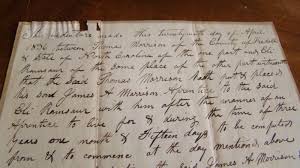 This indenture made this twentyninth day of April
1836 between Thomas Morrison of the County of Iredell
& State of North Carolina of the one part and Eli
Ramsour of the same place of the other part witnesseth
that the said Thomas Morrison Hath put & places
his son James H Morrison Aprentice to the said
Eli Ramsour with him after the manner of an
Aprentice to live for & during the time of three
years one month & Fifteen days to be computed
from & to commence at the day mentioned above
said James H Morrison